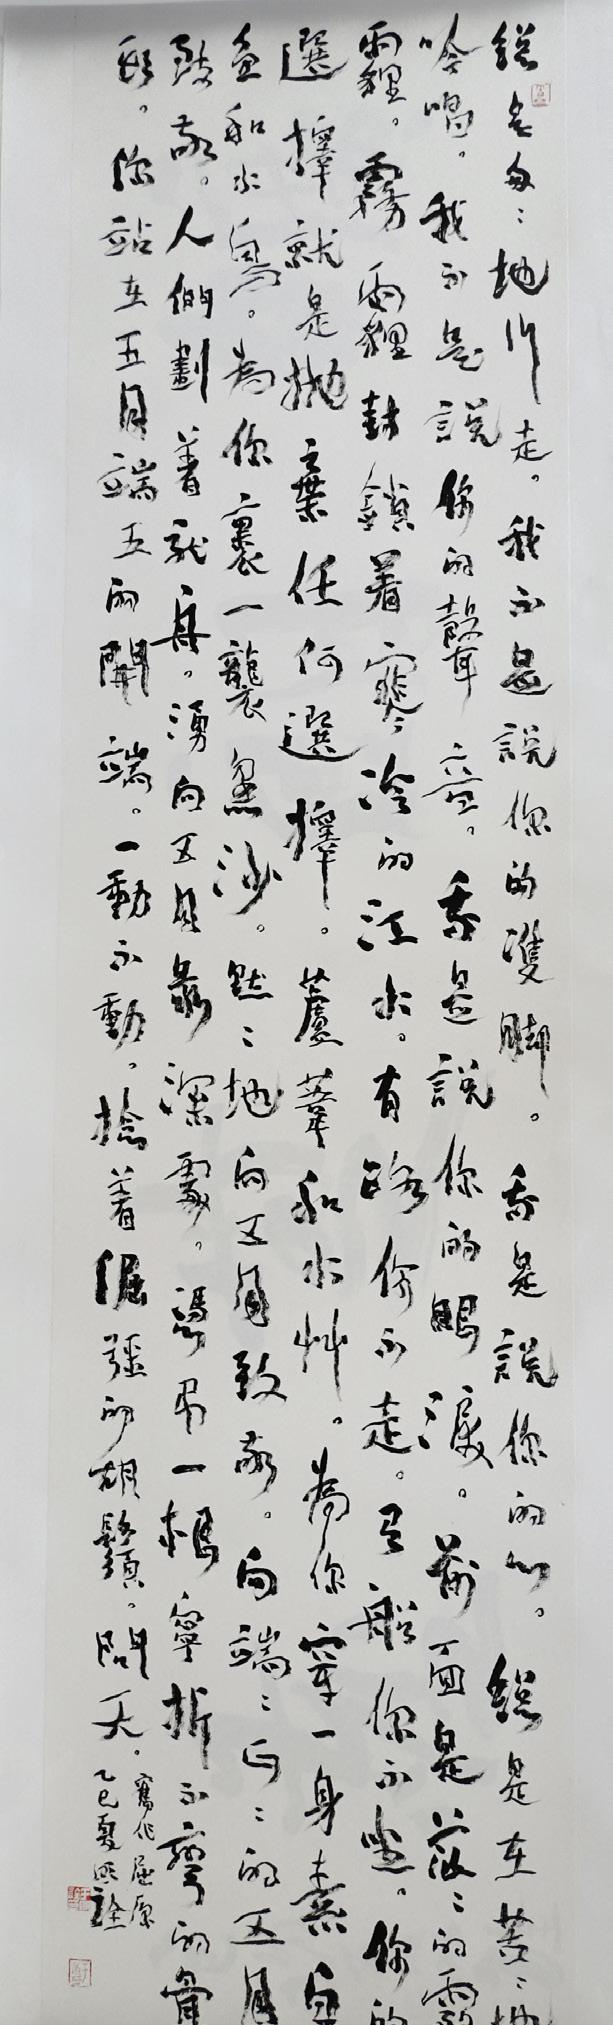 總是匆匆地行走。我不是說你的雙脚。我是說你的心。總是在苦苦地
吟唱。我不是說你的聲音。我是說你的眼淚。前面是茫茫的霧
霾。霧霾封鎖着寒冷的江水。有路你不走。有船你不坐。你的
選擇就是抛棄任何選擇。蘆葦和水艸。為你穿一身素白
魚和水鳥。為你裹一襲黑沙。默默地向五月致敬。向端端正正的五月
致敬。人們劃着龍舟。湧向五月最深處。憑弔一根寧折不彎的骨
頭。你站在五月端五的開端。一動不動。捻着倔疆的胡鬚。問天。
舊作屈原
乙巳夏